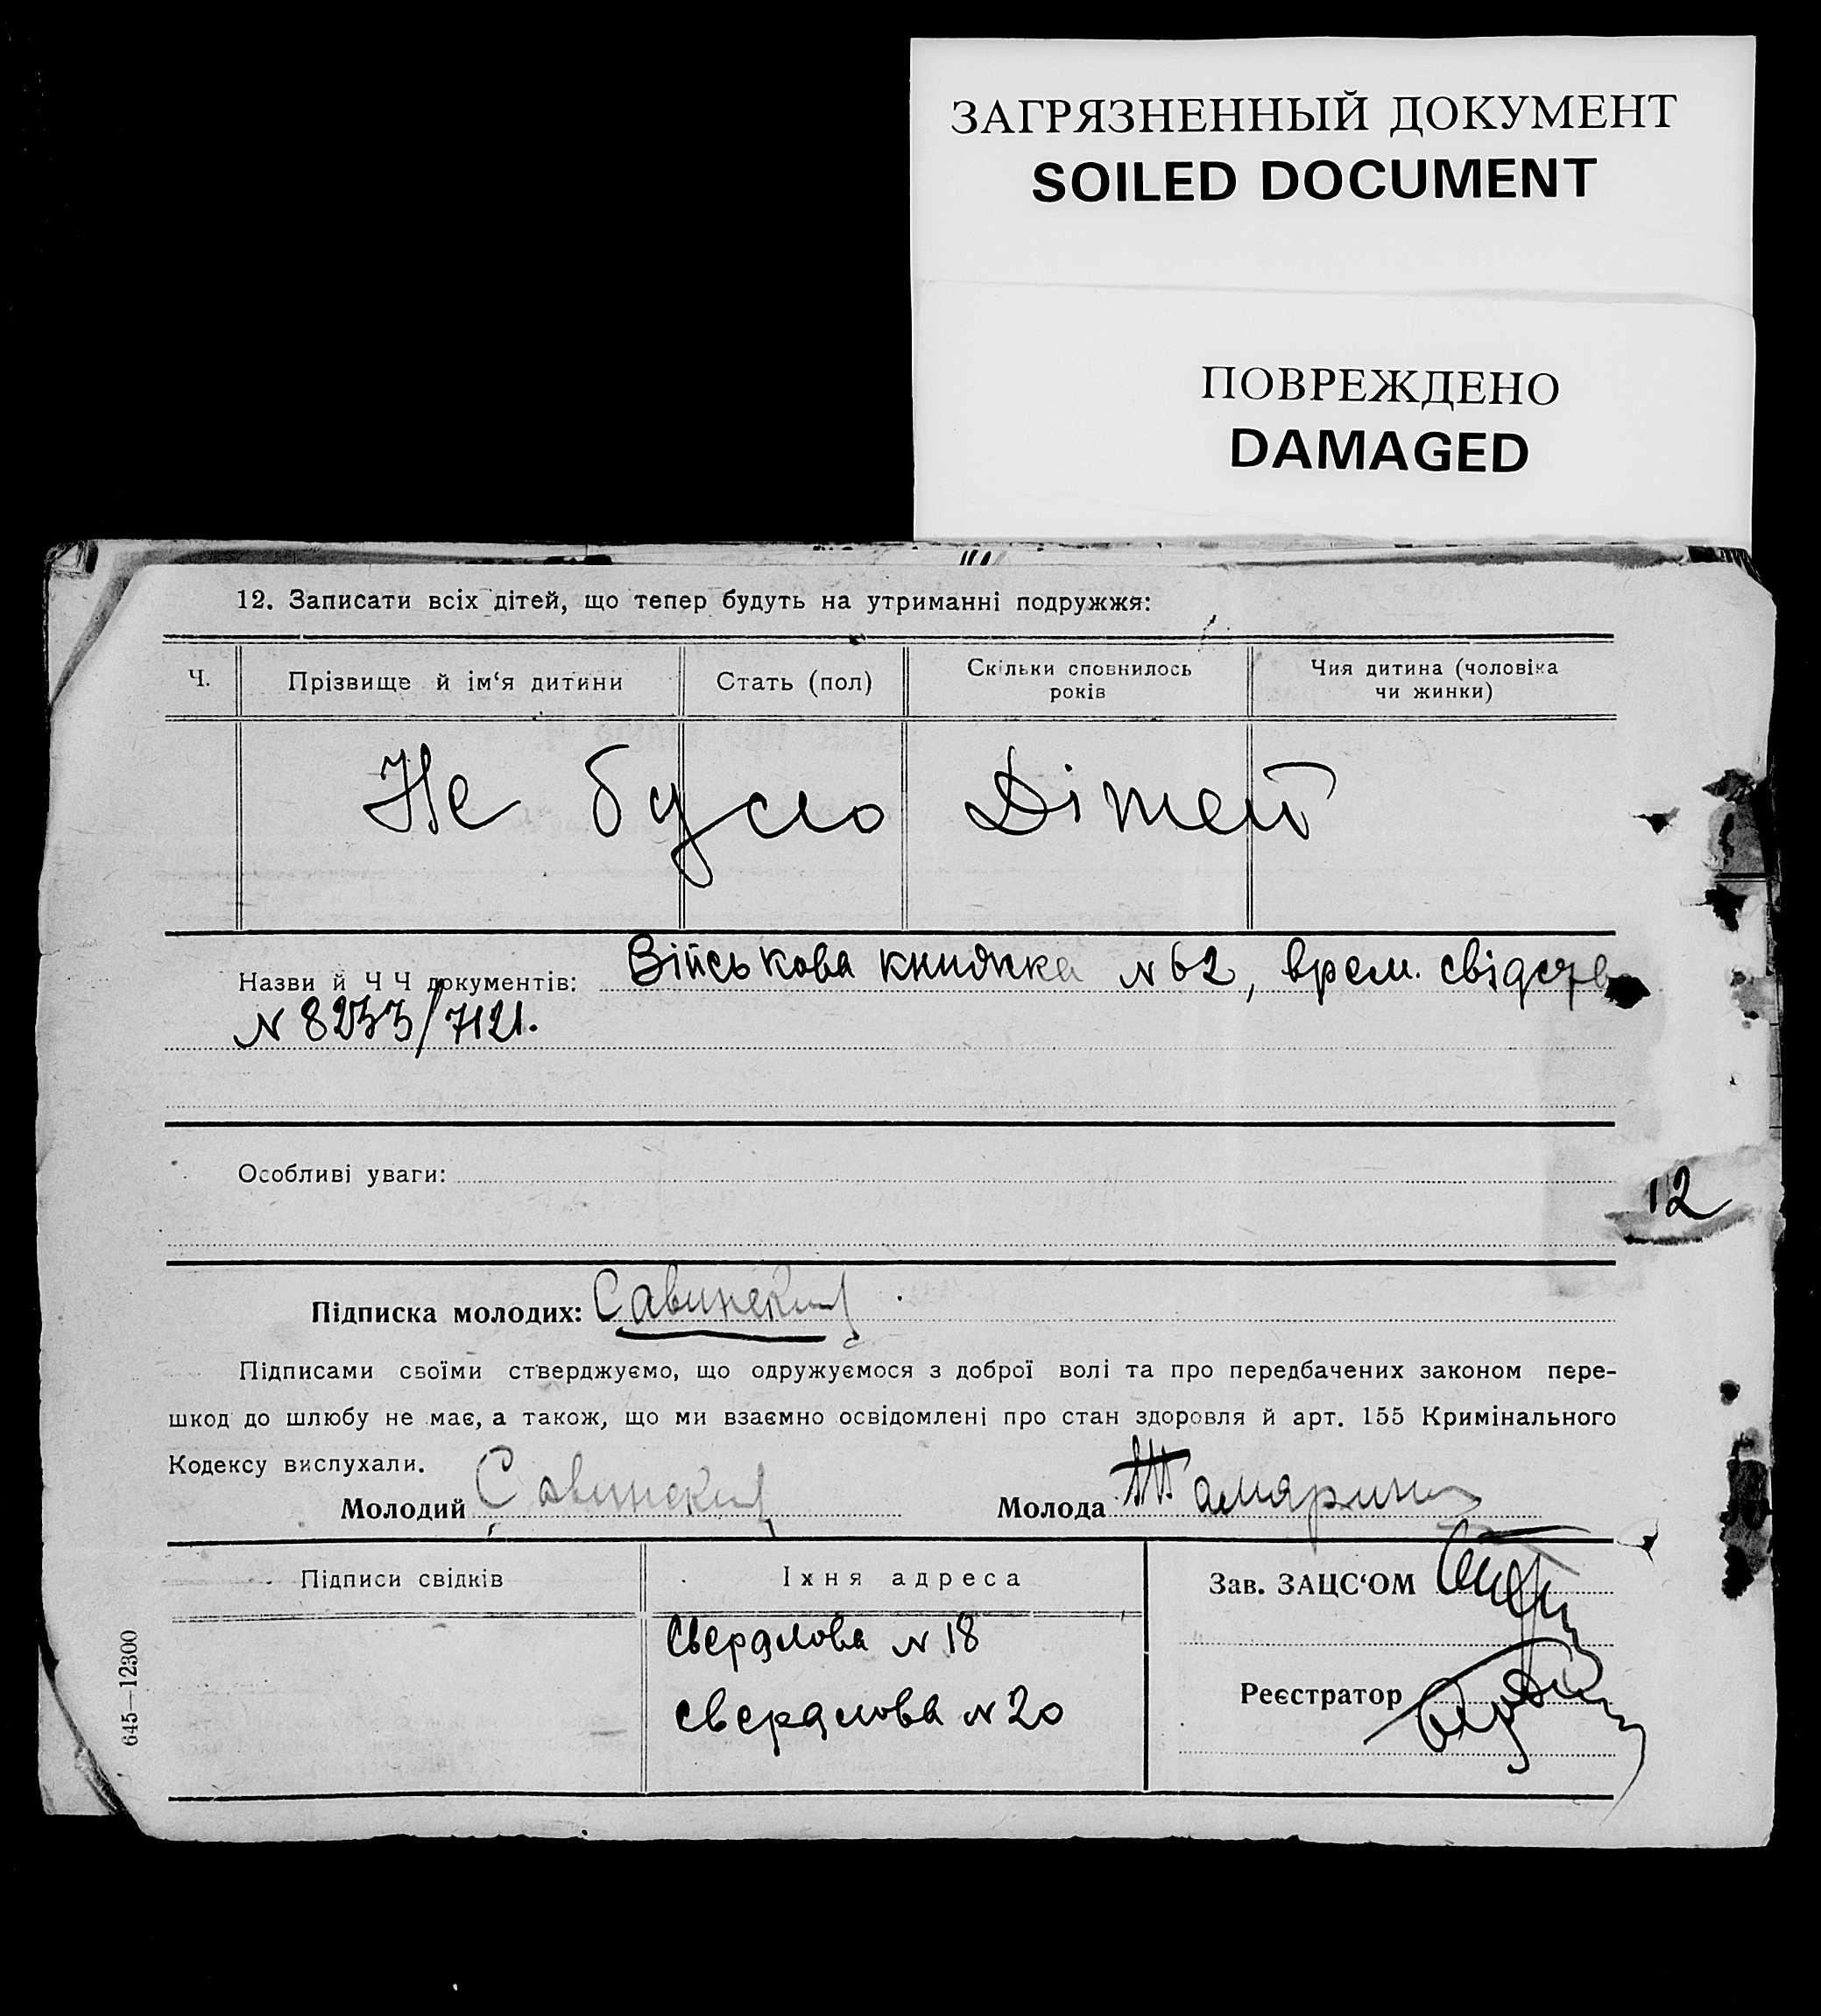 ЗАГРЯЗНЕННЫЙ ДОКУМЕНТ
SOILED DOCUMENT
ПОВРЕЖДЕНО
DAMAGED
12. Записати всіх дітей, що тепер будуть на утриманні подружжя:
Ч. Прізвище й ім‘я дитини Стать (пол) Скільки сповнилось років Чия дитина (чоловіка чи жинки)
Не було Дітей
Назви й Ч Ч документів: Військова книжка N 62, врем. свідств
N 8233/7121.
Особливі уваги:
12
Підписка молодих: Савинский
Підписами своїми стверджуємо, що одружуємося з доброї волі та про передбачених законом пере-
шкод до шлюбу не має, а також, що ми взаємно освідомлені про стан здоровля й арт. 155 Кримінального
Кодексу вислухали.
Молодий Савинский Молода
Підписи свідків Їхня адреса Зав. ЗАЦС‘ОМ
Свердлова N 18
Реєстратор
Свердлова N 20
645—12300